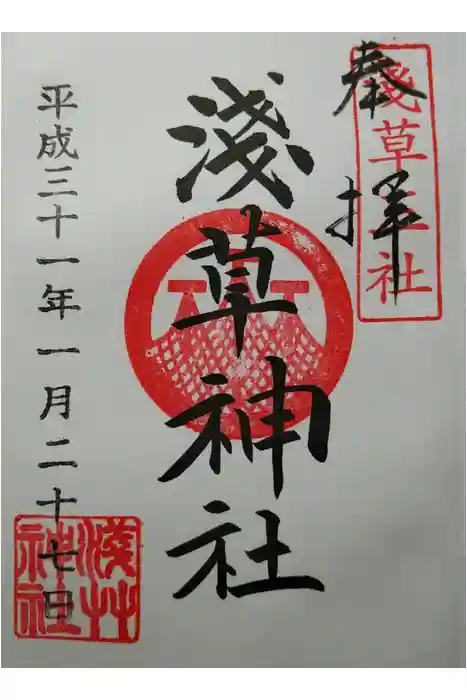 奉拝
淺草三社
淺草神社
平成三十一年一月二十七日
淺草神社